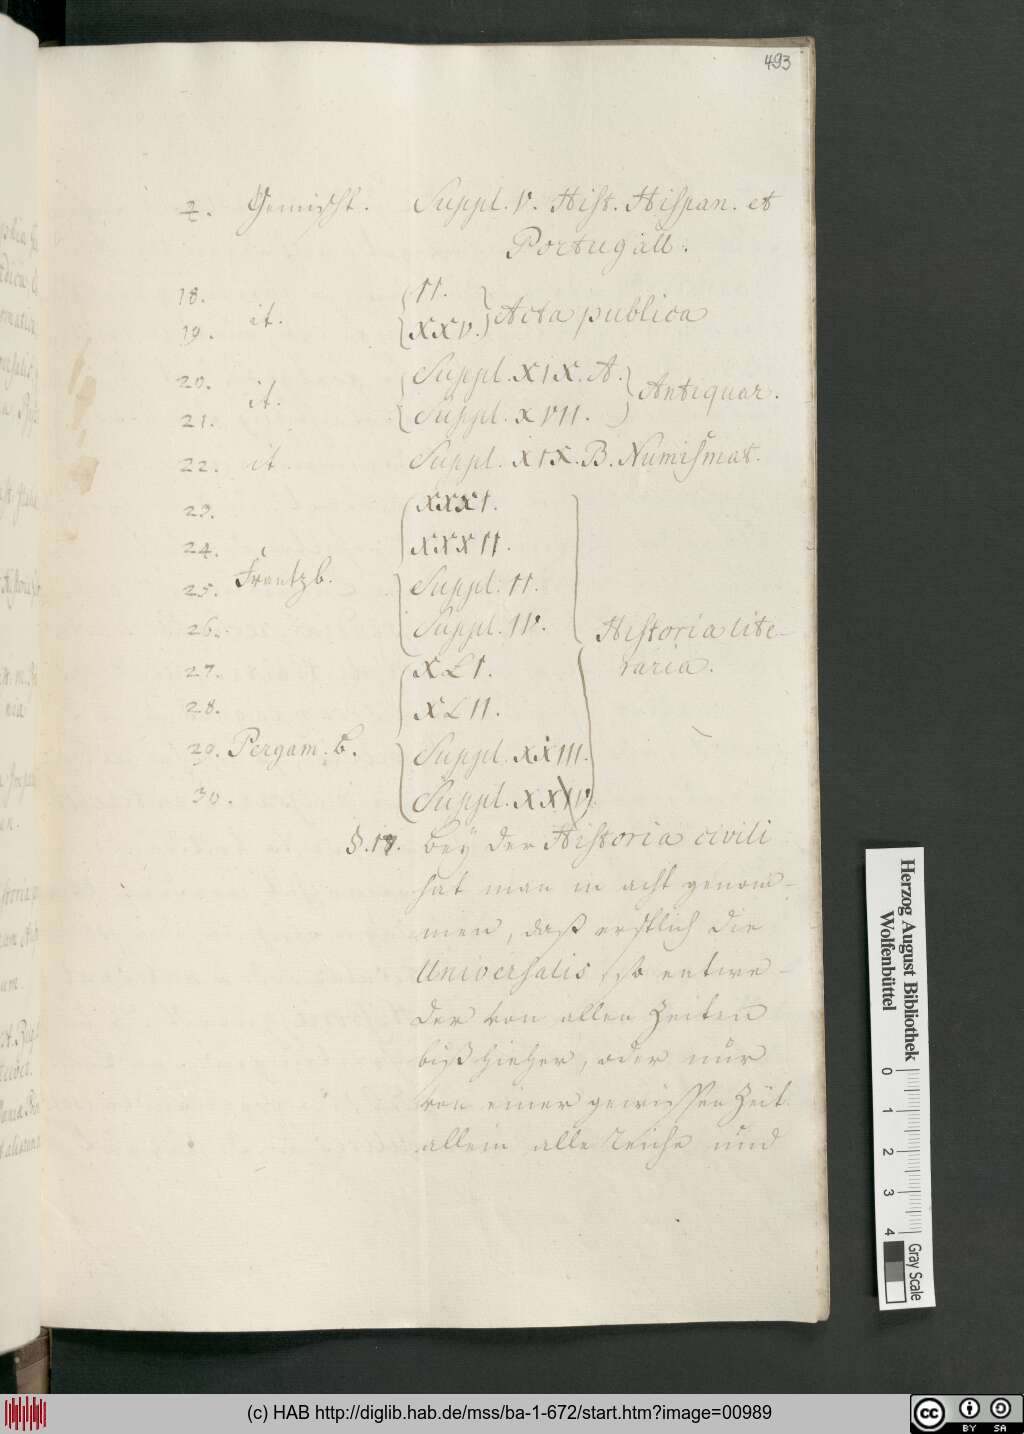 493
7. Gemischt. Suppl. V. Hist. Hispan. et
Portugall.
18. II.
it. Acta publica
19. XXV.
20. Suppl. XIX. A.
it. Antiquar.
21. Suppl. XVII.
22. it. Suppl. XIX. B. Numismat.
23. XXXI.
24. XXXII.
Frantzb.
25. Suppl. II.
26. Suppl. IV.
Historia lite-
raria.
27. XLI.
28. XLII.
29. Pergam. b. Suppl. XXIII.
30. Suppl. XXIV.
§. 17. Bey der Historia civili
hat man in acht genom-
men, daß erstlich die
Universalis, so entwe-
der von allen Zeiten
biß hieher, oder nur
von einer gewissen Zeit
allein alle Reiche und
Herzog August Bibliothek
Wolfenbüttel
0 1 2 3 4
Gray Scale
(c) HAB http://diglib.hab.de/mss/ba-1-672/start.htm?image=00989
cc BY SA